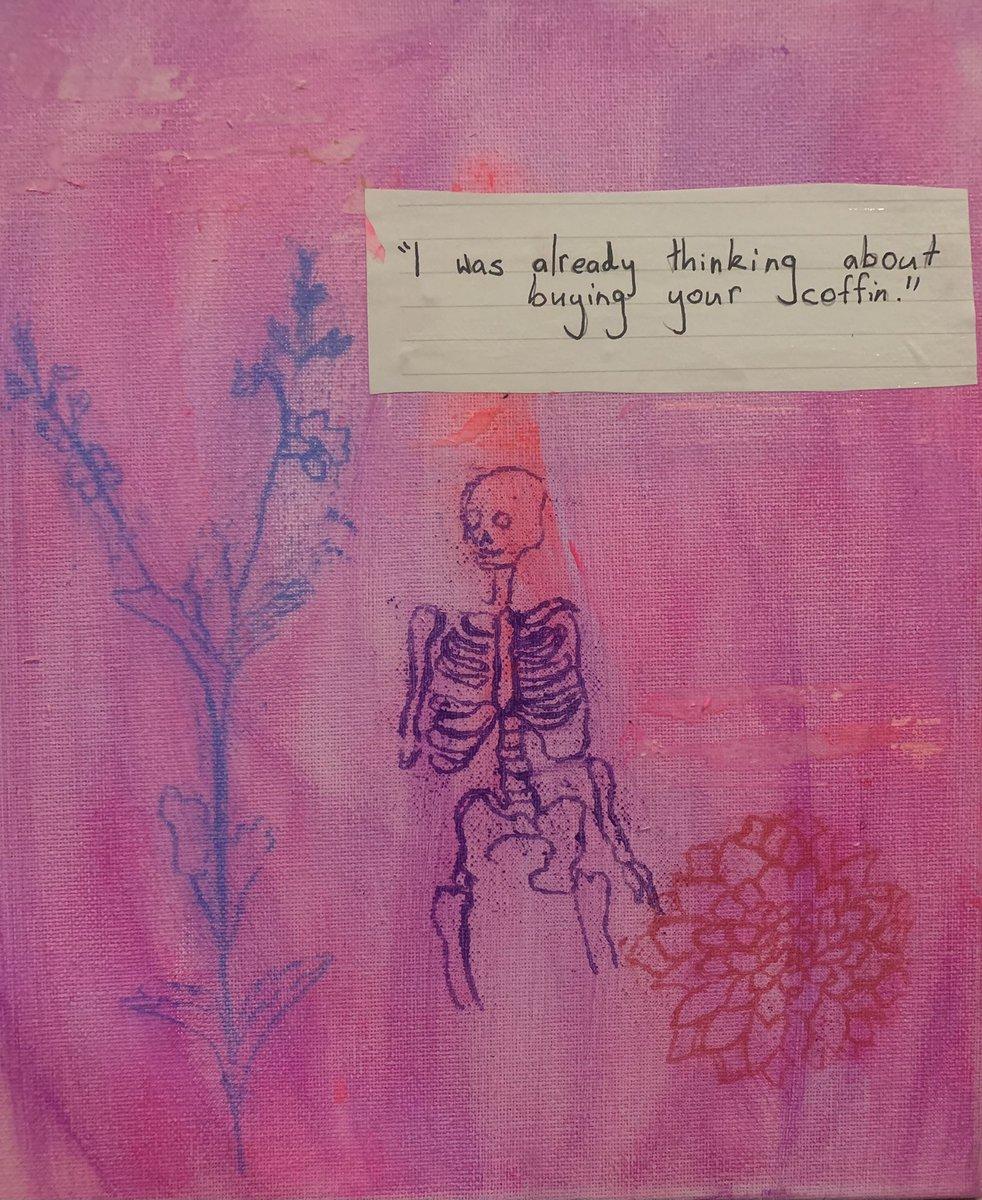 "I was already thinking about
buying your coffin."